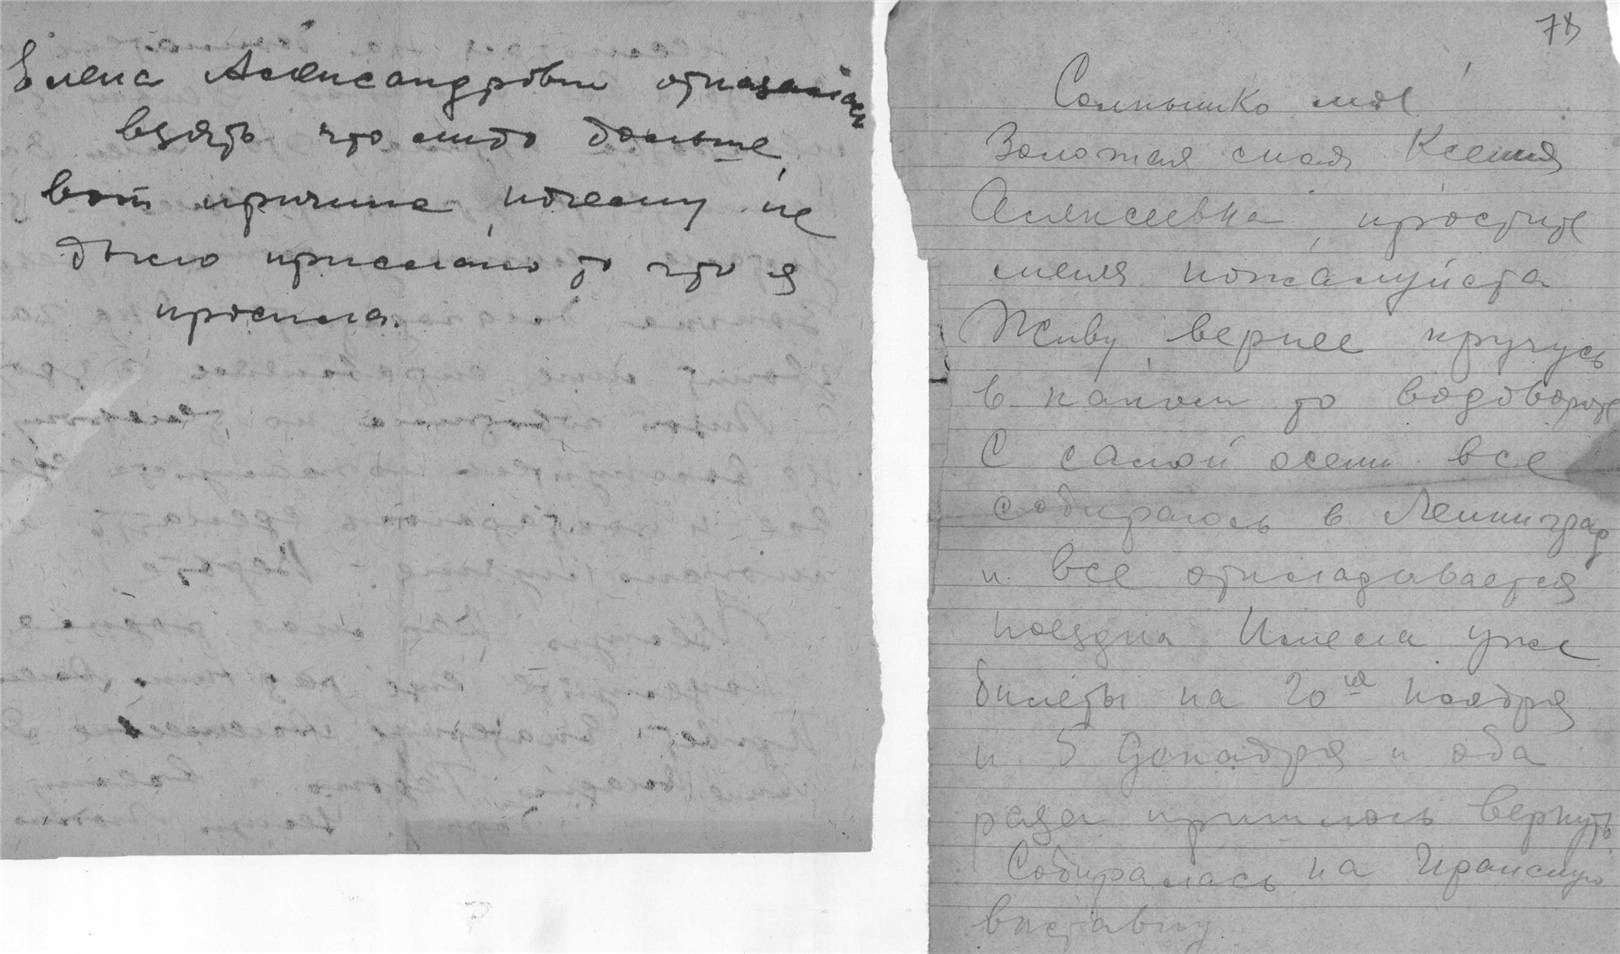 Елена Александровна отказалась
взять что либо больше,
вот причина, почему не
было прислано то что я
просила.
78
Солнышко мое
Золотая моя Ксения
Алексеевна, простите
меня пожалуйста
Живу, вернее кручусь
в каком то водовороте
С самой осени все
собираюсь в Ленинград
и все откладывается
поездка Имела уже
билеты на 20ое ноября
и 5 декабря и оба
раза пришлось вернуть
Собиралась на Иранскую
выставку.